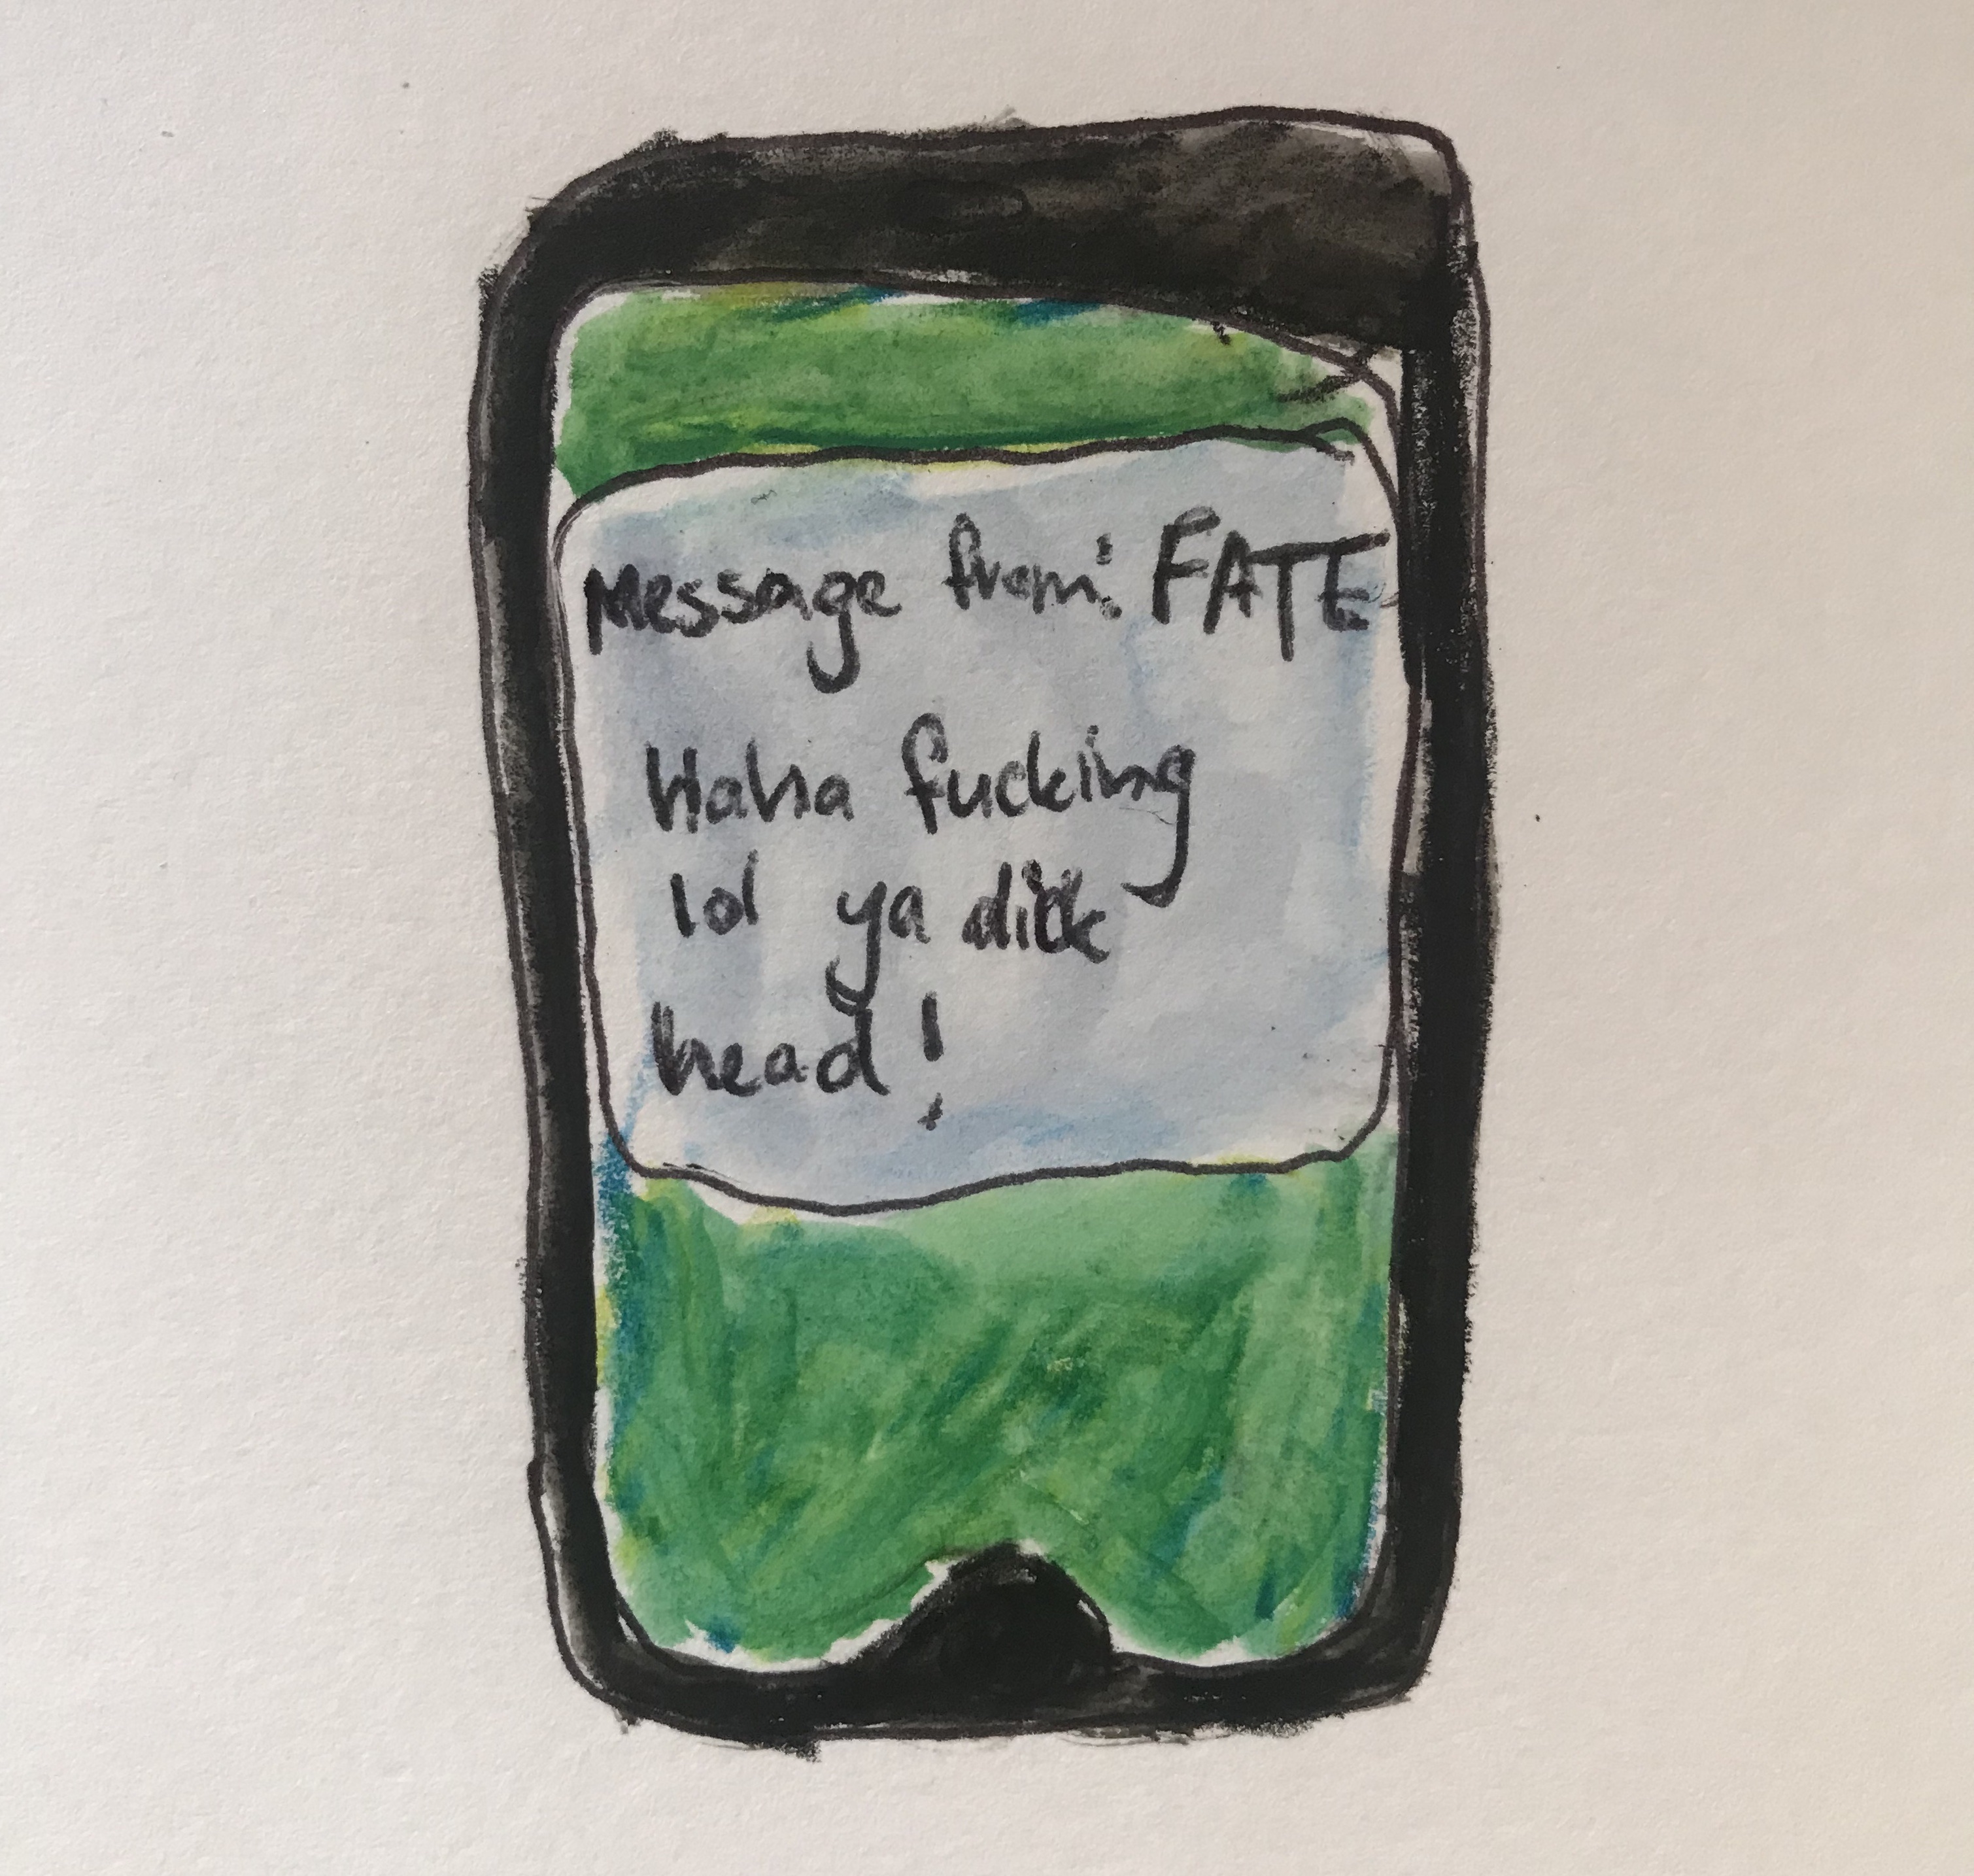 Message from: FATE
Haha fucking
lol ya dick
head!